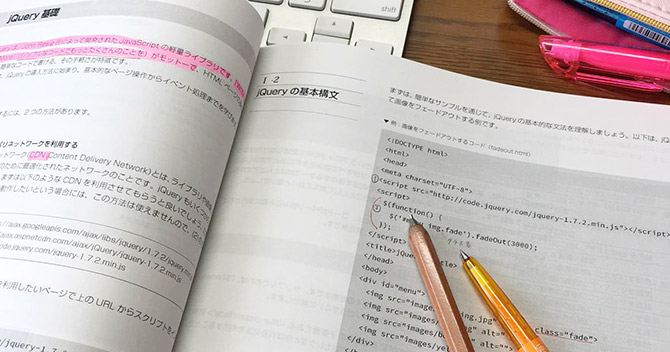 jQuery 基礎
によって開発された JavaScript の軽量ライブラリです。
もっとたくさんのことを) がモットーで、HTML ページ
簡単なコードで書ける、その手軽さが特徴です。
jQuery の導入方法に始まり、基本的なページ操作からイベント処理までを学び
するには、2つの方法があります。
ネットワークを利用する
ネットワーク CDN (Content Delivery Network) とは、ライブラリや
のために最適化されたネットワークのことです。jQuery もいくつ
まずは以下のような CDN を利用させてもらうと良いでしょう
動作したいという場合には、この方法は使えませんので、
//ajax.googleapis.com/ajax/libs/jquery/1.7.2/jquery.min
ajax.aspnetcdn.com/ajax/jQuery/jquery-1.7.2.min.js
jquery-1.7.2.min.js
を利用したいページで上の URL からスクリプトを
1-2
jQuery の基本構文
まずは、簡単なサンプルを通じて、jQuery の基本的な文法を理解しましょう。以下は、
て画像をフェードアウトする例です。
▼例:画像をフェードアウトするコード (fadeout.html)
<!DOCTYPE html>
<html>
<head>
<meta charset="UTF-8">
① <script src="http://code.jquery.com/jquery-1.7.2.min.js"></script>
<script>
② $(function() {
img.fade').fadeOut(3000);
});
</script>
<title>jQ
</head>
<body>
<div id="menu">
<img src="images
<img src="images
class="fade">
<img src="images/
<img src="images/ye
</div>